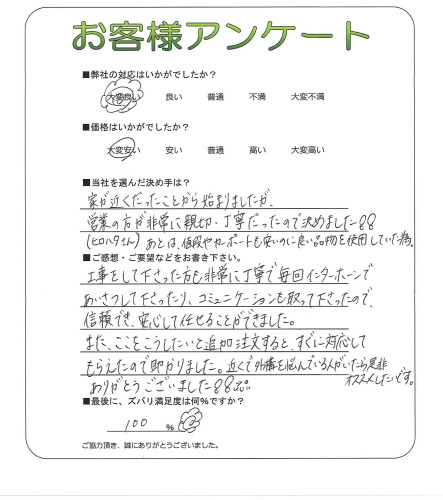 お客様アンケート
■弊社の対応はいかがでしたか?
大変良い 良い 普通 不満 大変不満
■価格はいかがでしたか?
大変安い 安い 普通 高い 大変高い
■当社を選んだ決め手は?
家が近くだったことから始まりましたが、
営業の方が非常に親切・丁寧だったので決めました!!
(ヒロハタさん) あとは、値段やカーポートも安いのに良い品物を使用していた為。
■ご感想・ご要望などをお書き下さい。
工事をして下さった方も非常に丁寧で毎回インターホーンで
あいさつして下さったり、コミュニケーションも取って下さったので、
信頼でき、安心して任せることができました。
また、ここをこうしたいと追加注文すると、すぐに対応して
もらえたので助かりました。近くで外構を悩んでいる人がいたら是非
オススメしたいです。
ありがとうございました!!
■最後に、ズバリ満足度は何%ですか?
100 %
ご協力頂き、誠にありがとうございました。